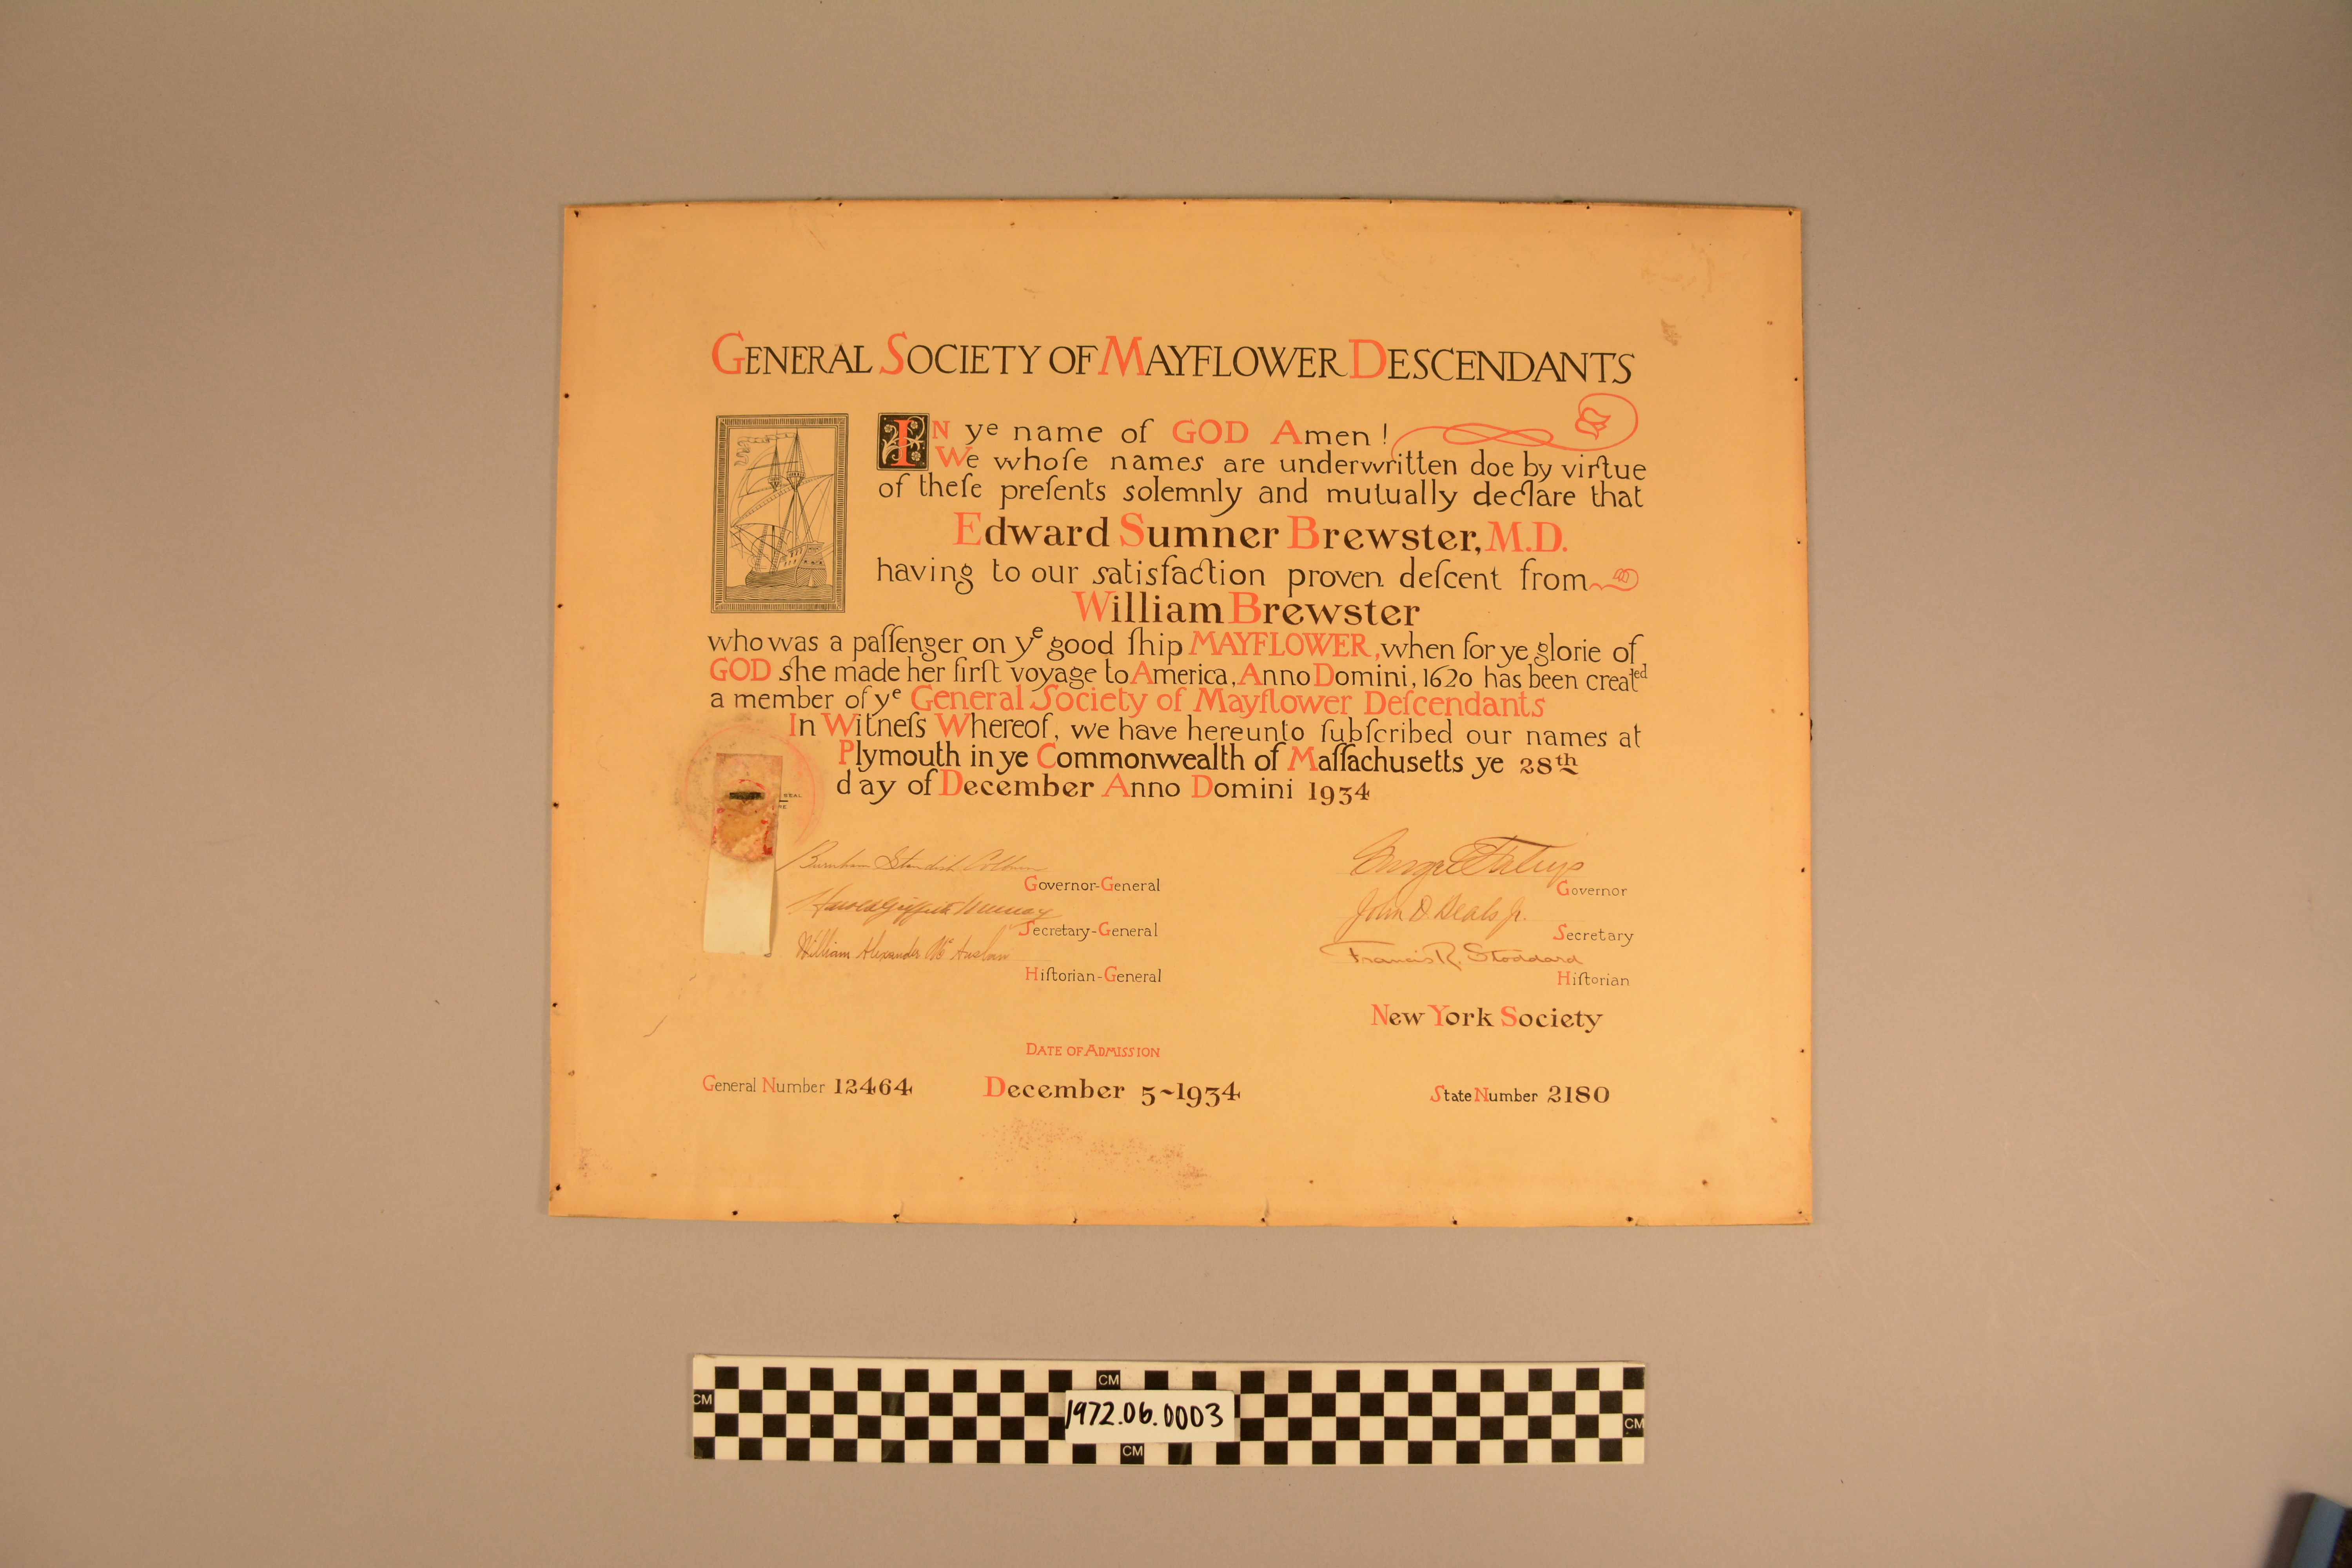 GENERAL SOCIETY OF MAYFLOWER DESCENDANTS
IN ye name of GOD Amen!
We whoſe names are underwritten doe by virtue
of theſe preſents solemnly and mutually declare that
Edward Sumner Brewster, M.D.
having to our satisfaction proven deſcent from
William Brewster
who was a paſſenger on ye good ſhip MAYFLOWER, when for ye glorie of
GOD she made her firſt voyage to America, Anno Domini, 1620 has been created
a member of ye General Society of Mayflower Deſcendants
In Witneſs Whereof, we have hereunto ſubſcribed our names at
Plymouth in ye Commonwealth of Maſſachusetts ye 28th
day of December Anno Domini 1934
SEAL
RE
Burnham Standish Colburn
Governor-General
Harold Griffith Murray
Secretary-General
William Alexander McAuslan
Hiſtorian-General
Governor
John D. Beals Jr.
Secretary
Francis R. Stoddard
Hiſtorian
New York Society
DATE OF ADMISSION
General Number 12464
December 5~1934
State Number 2180
CM
CM
1972.06.0003
CM
CM